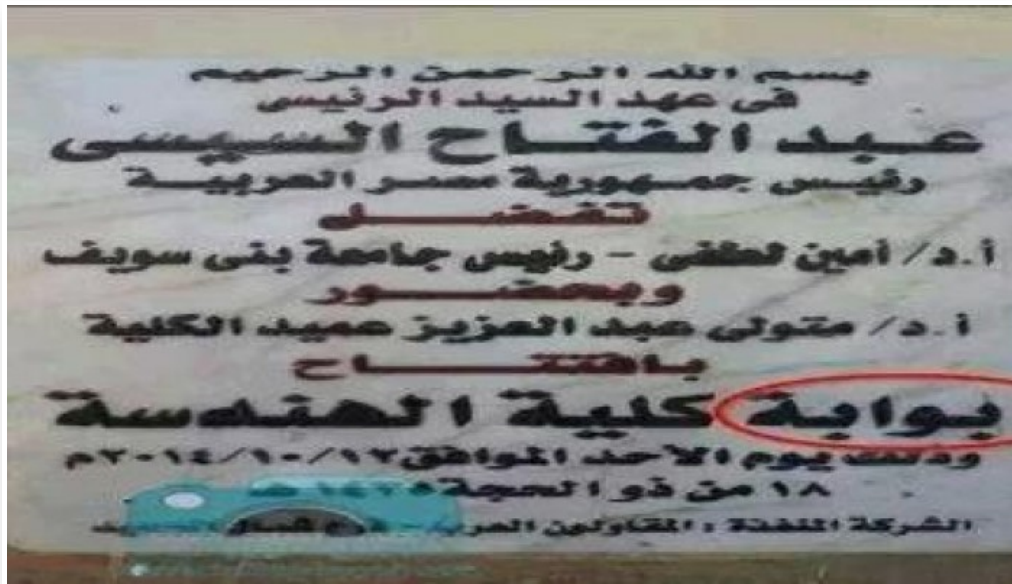 بسم الله الرحمن الرحيم
فى عهد السيد الرئيس
عبد الفتاح السيسى
رئيس جمهورية مصر العربية
تفضل
أ.د/ أمين لطفى - رئيس جامعة بنى سويف
وبحضور
أ.د/ متولى عبد العزيز عميد الكلية
بافتتاح
بوابة كلية الهندسة
وذلك يوم الأحد الموافق ١٢/١٠/٢٠١٤م
١٨ من ذو الحجة ١٤٣٥ هـ
الشركة المنفذة : المقاولون العرب - فرع شمال الصعيد